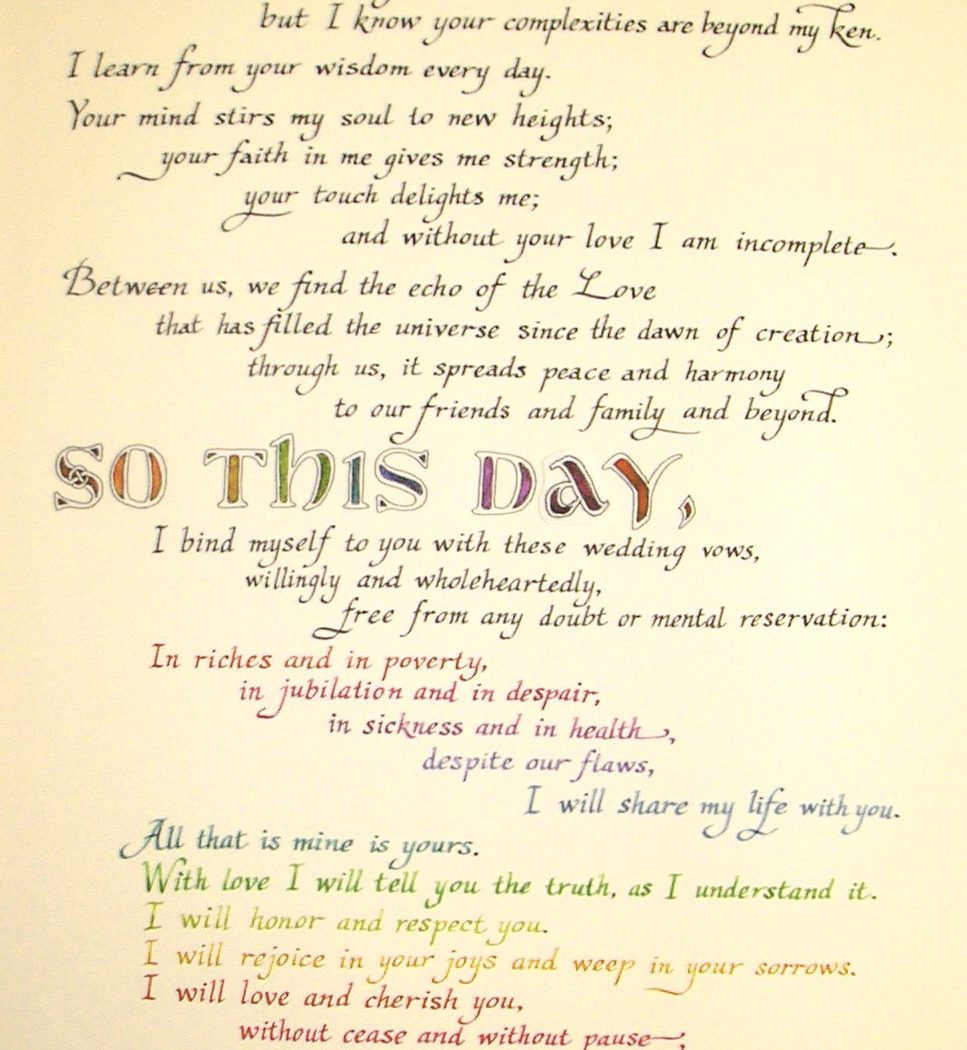 but I know your complexities are beyond my ken.
I learn from your wisdom every day.
Your mind stirs my soul to new heights;
your faith in me gives me strength;
your touch delights me;
and without your love I am incomplete.
Between us, we find the echo of the Love
that has filled the universe since the dawn of creation;
through us, it spreads peace and harmony
to our friends and family and beyond.
SO THIS DAY,
I bind myself to you with these wedding vows,
willingly and wholeheartedly,
free from any doubt or mental reservation:
In riches and in poverty,
in jubilation and in despair,
in sickness and in health,
despite our flaws,
I will share my life with you.
All that is mine is yours.
With love I will tell you the truth, as I understand it.
I will honor and respect you.
I will rejoice in your joys and weep in your sorrows.
I will love and cherish you,
without cease and without pause;